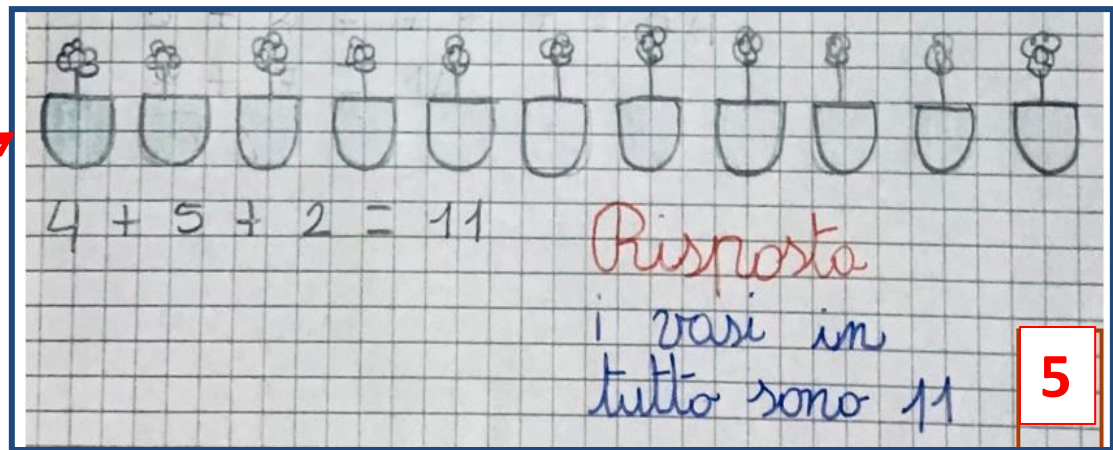 4 + 5 + 2 = 11
Risposta
i vasi in
tutto sono 11
5